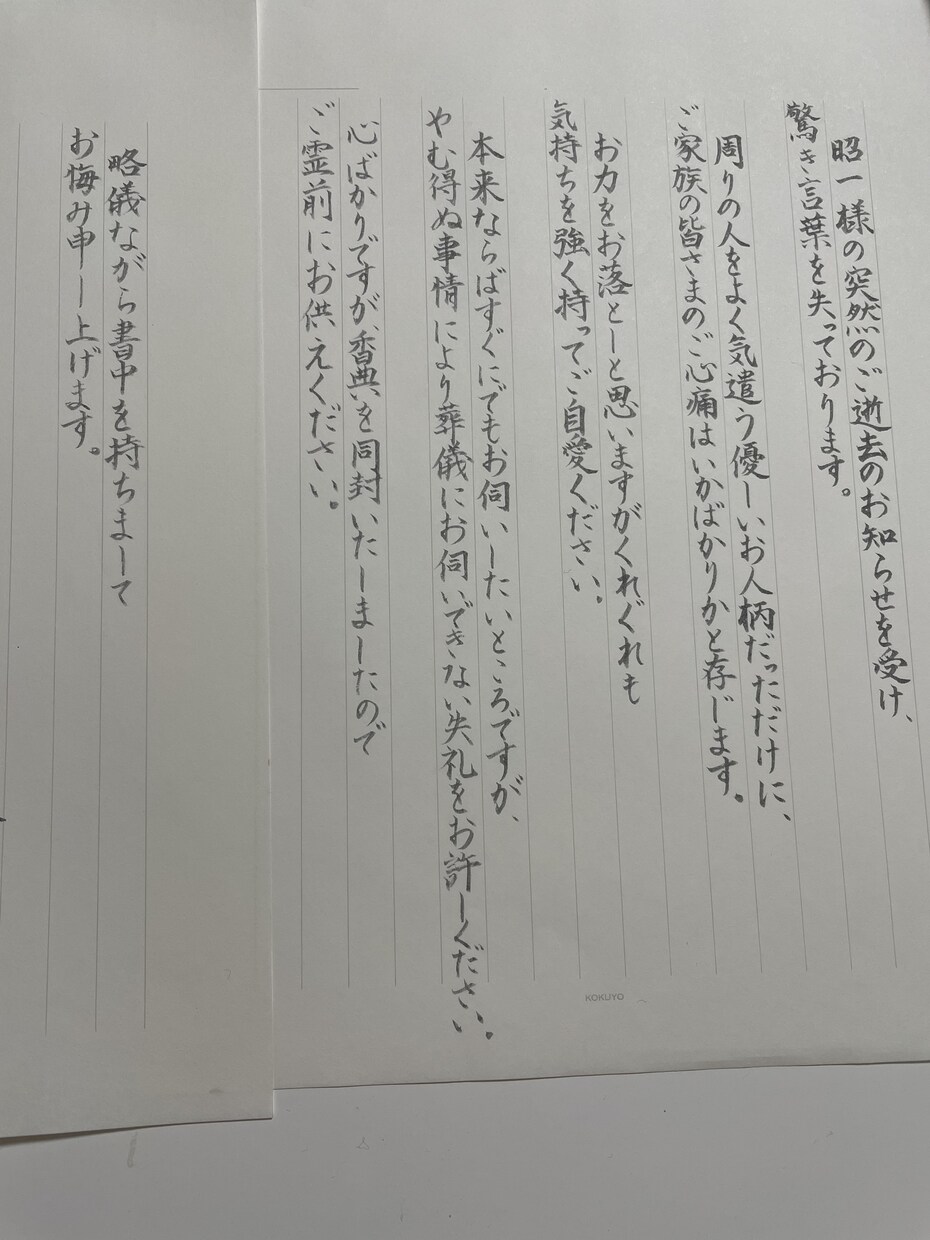 昭一様の突然のご逝去のお知らせを受け、
驚き言葉を失っております。
周りの人をよく気遣う優しいお人柄だっただけに、
ご家族の皆さまのご心痛はいかばかりかと存じます。
お力をお落としと思いますがくれぐれも
気持ちを強く持ってご自愛ください。
本来ならばすぐにでもお伺いしたいところですが、
やむ得ぬ事情により葬儀にお伺いできない失礼をお許しください。
心ばかりですが、香典を同封いたしましたので
ご霊前にお供えください。
略儀ながら書中を持ちまして
お悔み申し上げます。
KOKUYO